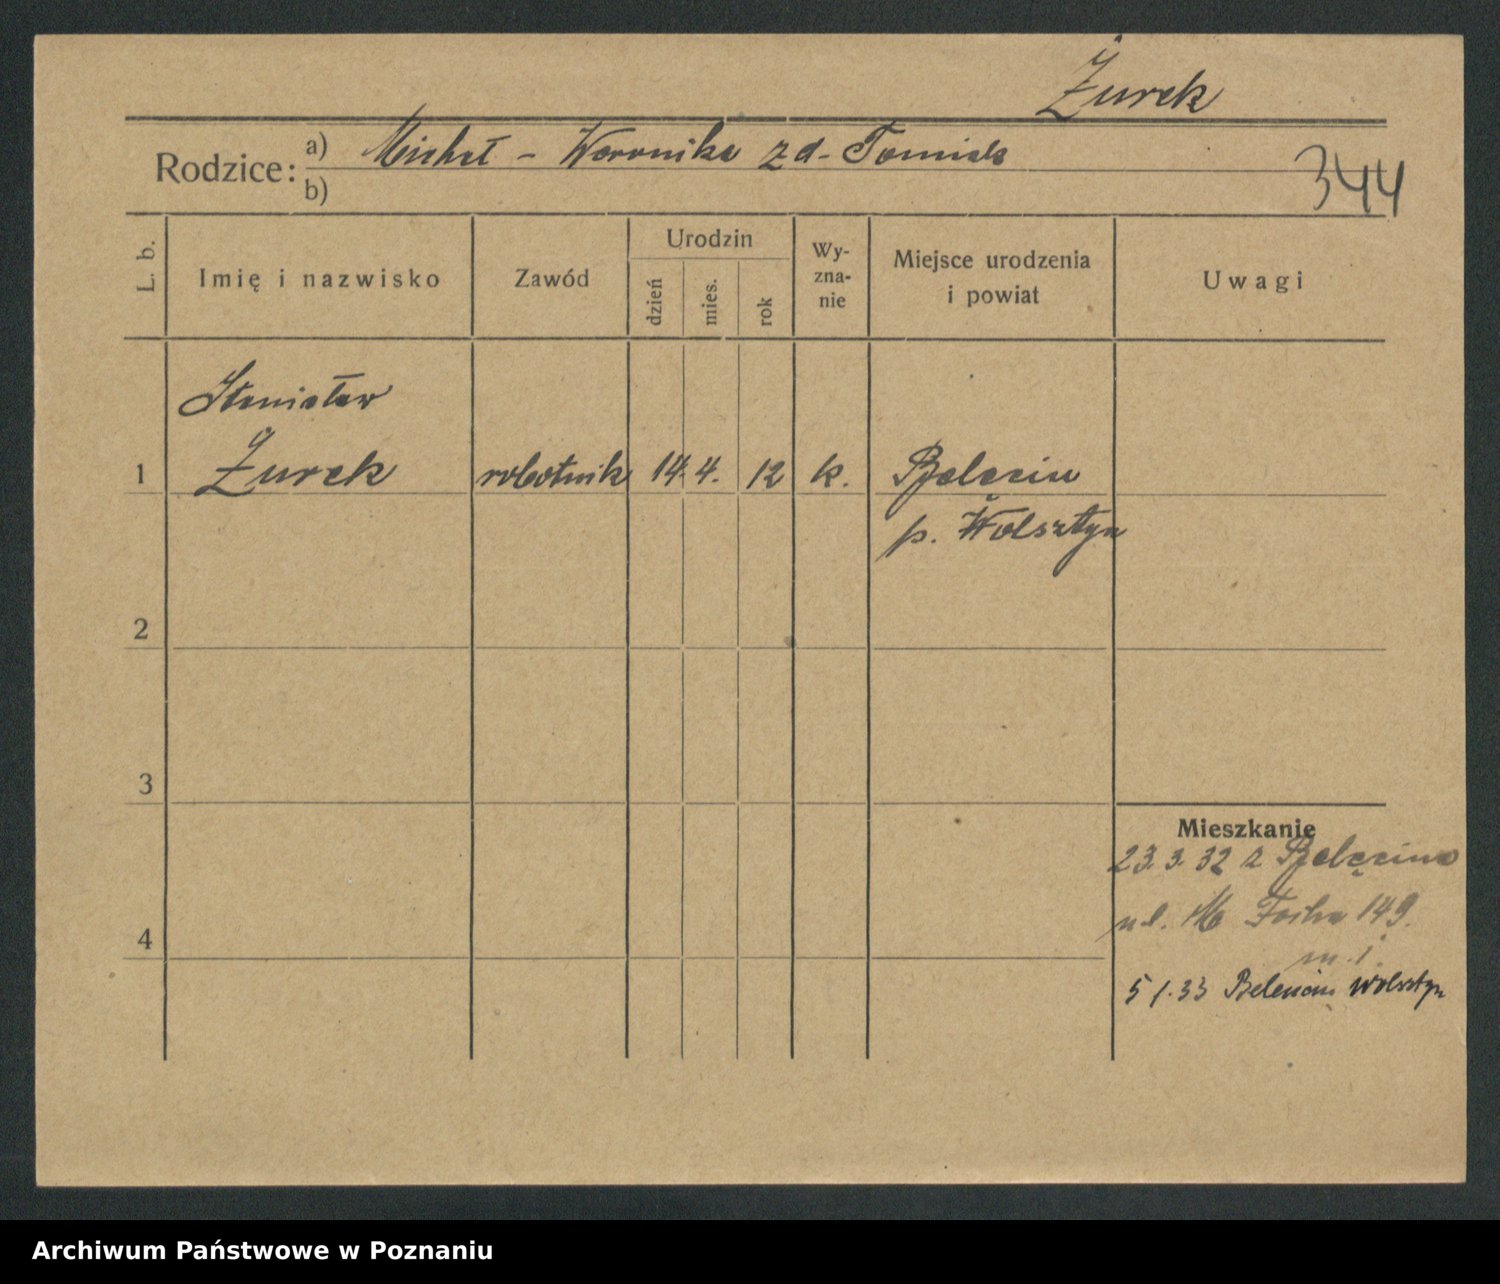 Żurek
Rodzice: a) Michał - Weronika z d. Tomiak
b)
344
L. b.
Imię i nazwisko
Zawód
Urodzin
dzień
mies.
rok
Wy-
zna-
nie
Miejsce urodzenia
i powiat
Uwagi
Stanisław
1 Żurek robotnik 14. 4. 12 k. Bełęcin
p. Wolsztyn
2
3
Mieszkanie
23. 3. 32 z Bełęcina
ul. M Focha 149.
4
m. 1.
5 1. 33 Wolsztyn
Archiwum Państwowe w Poznaniu